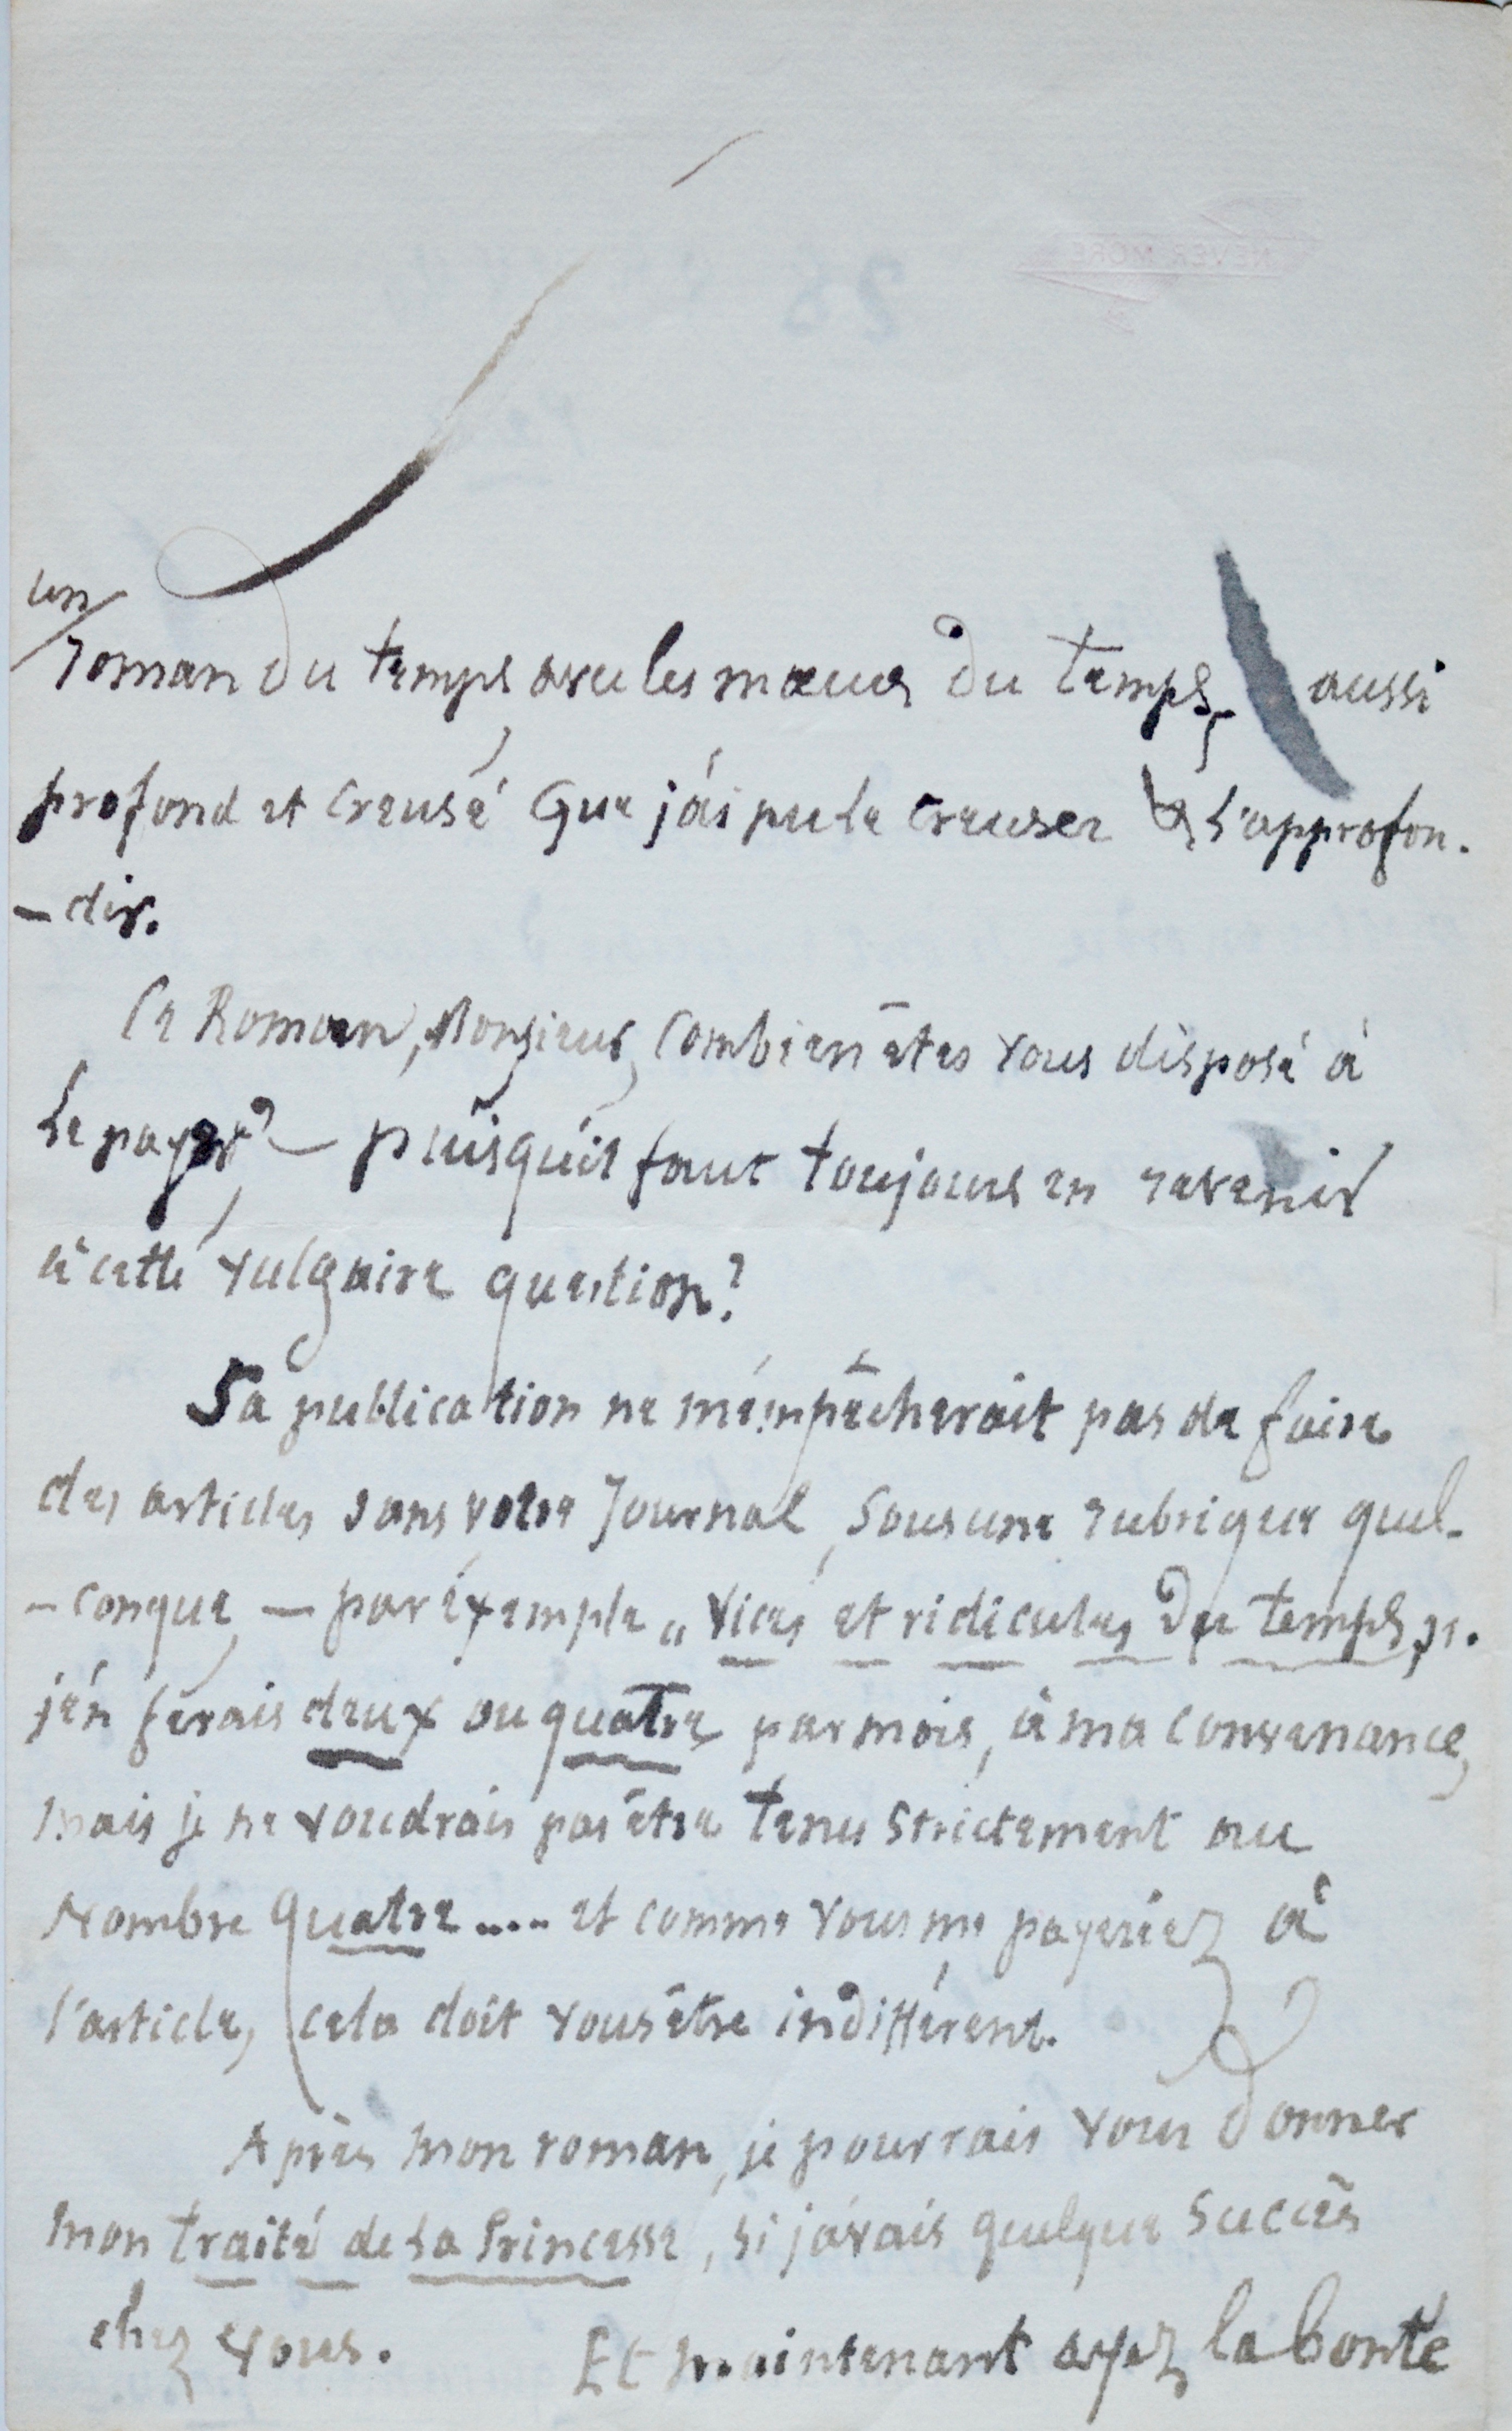 NEVER MORE
28
un
roman du temps, avec les mœurs du temps, aussi
profond et creusé que j'ai pu le creuser & l'approfon-
-dir.
Ce Roman, Monsieur, combien êtes vous disposé à
le payer? — puisqu'il faut toujours en revenir
à cette vulgaire question?
Sa publication ne m'empêcherait pas de faire
des articles dans votre Journal, sous une rubrique quel-
-conque, — par éxemple „ Vices et ridicules du temps „.
j'en ferais deux ou quatre par mois, à ma convenance,
mais je ne voudrais pas être tenu strictement au
Nombre quatre ..... et comme vous me payeriez à
l'article, cela doit vous être indifférent.
Après mon roman, je pourrais vous donner
mon traité de la Princesse, si j'avais quelque succès
chez vous. Et maintenant ayez la bonté